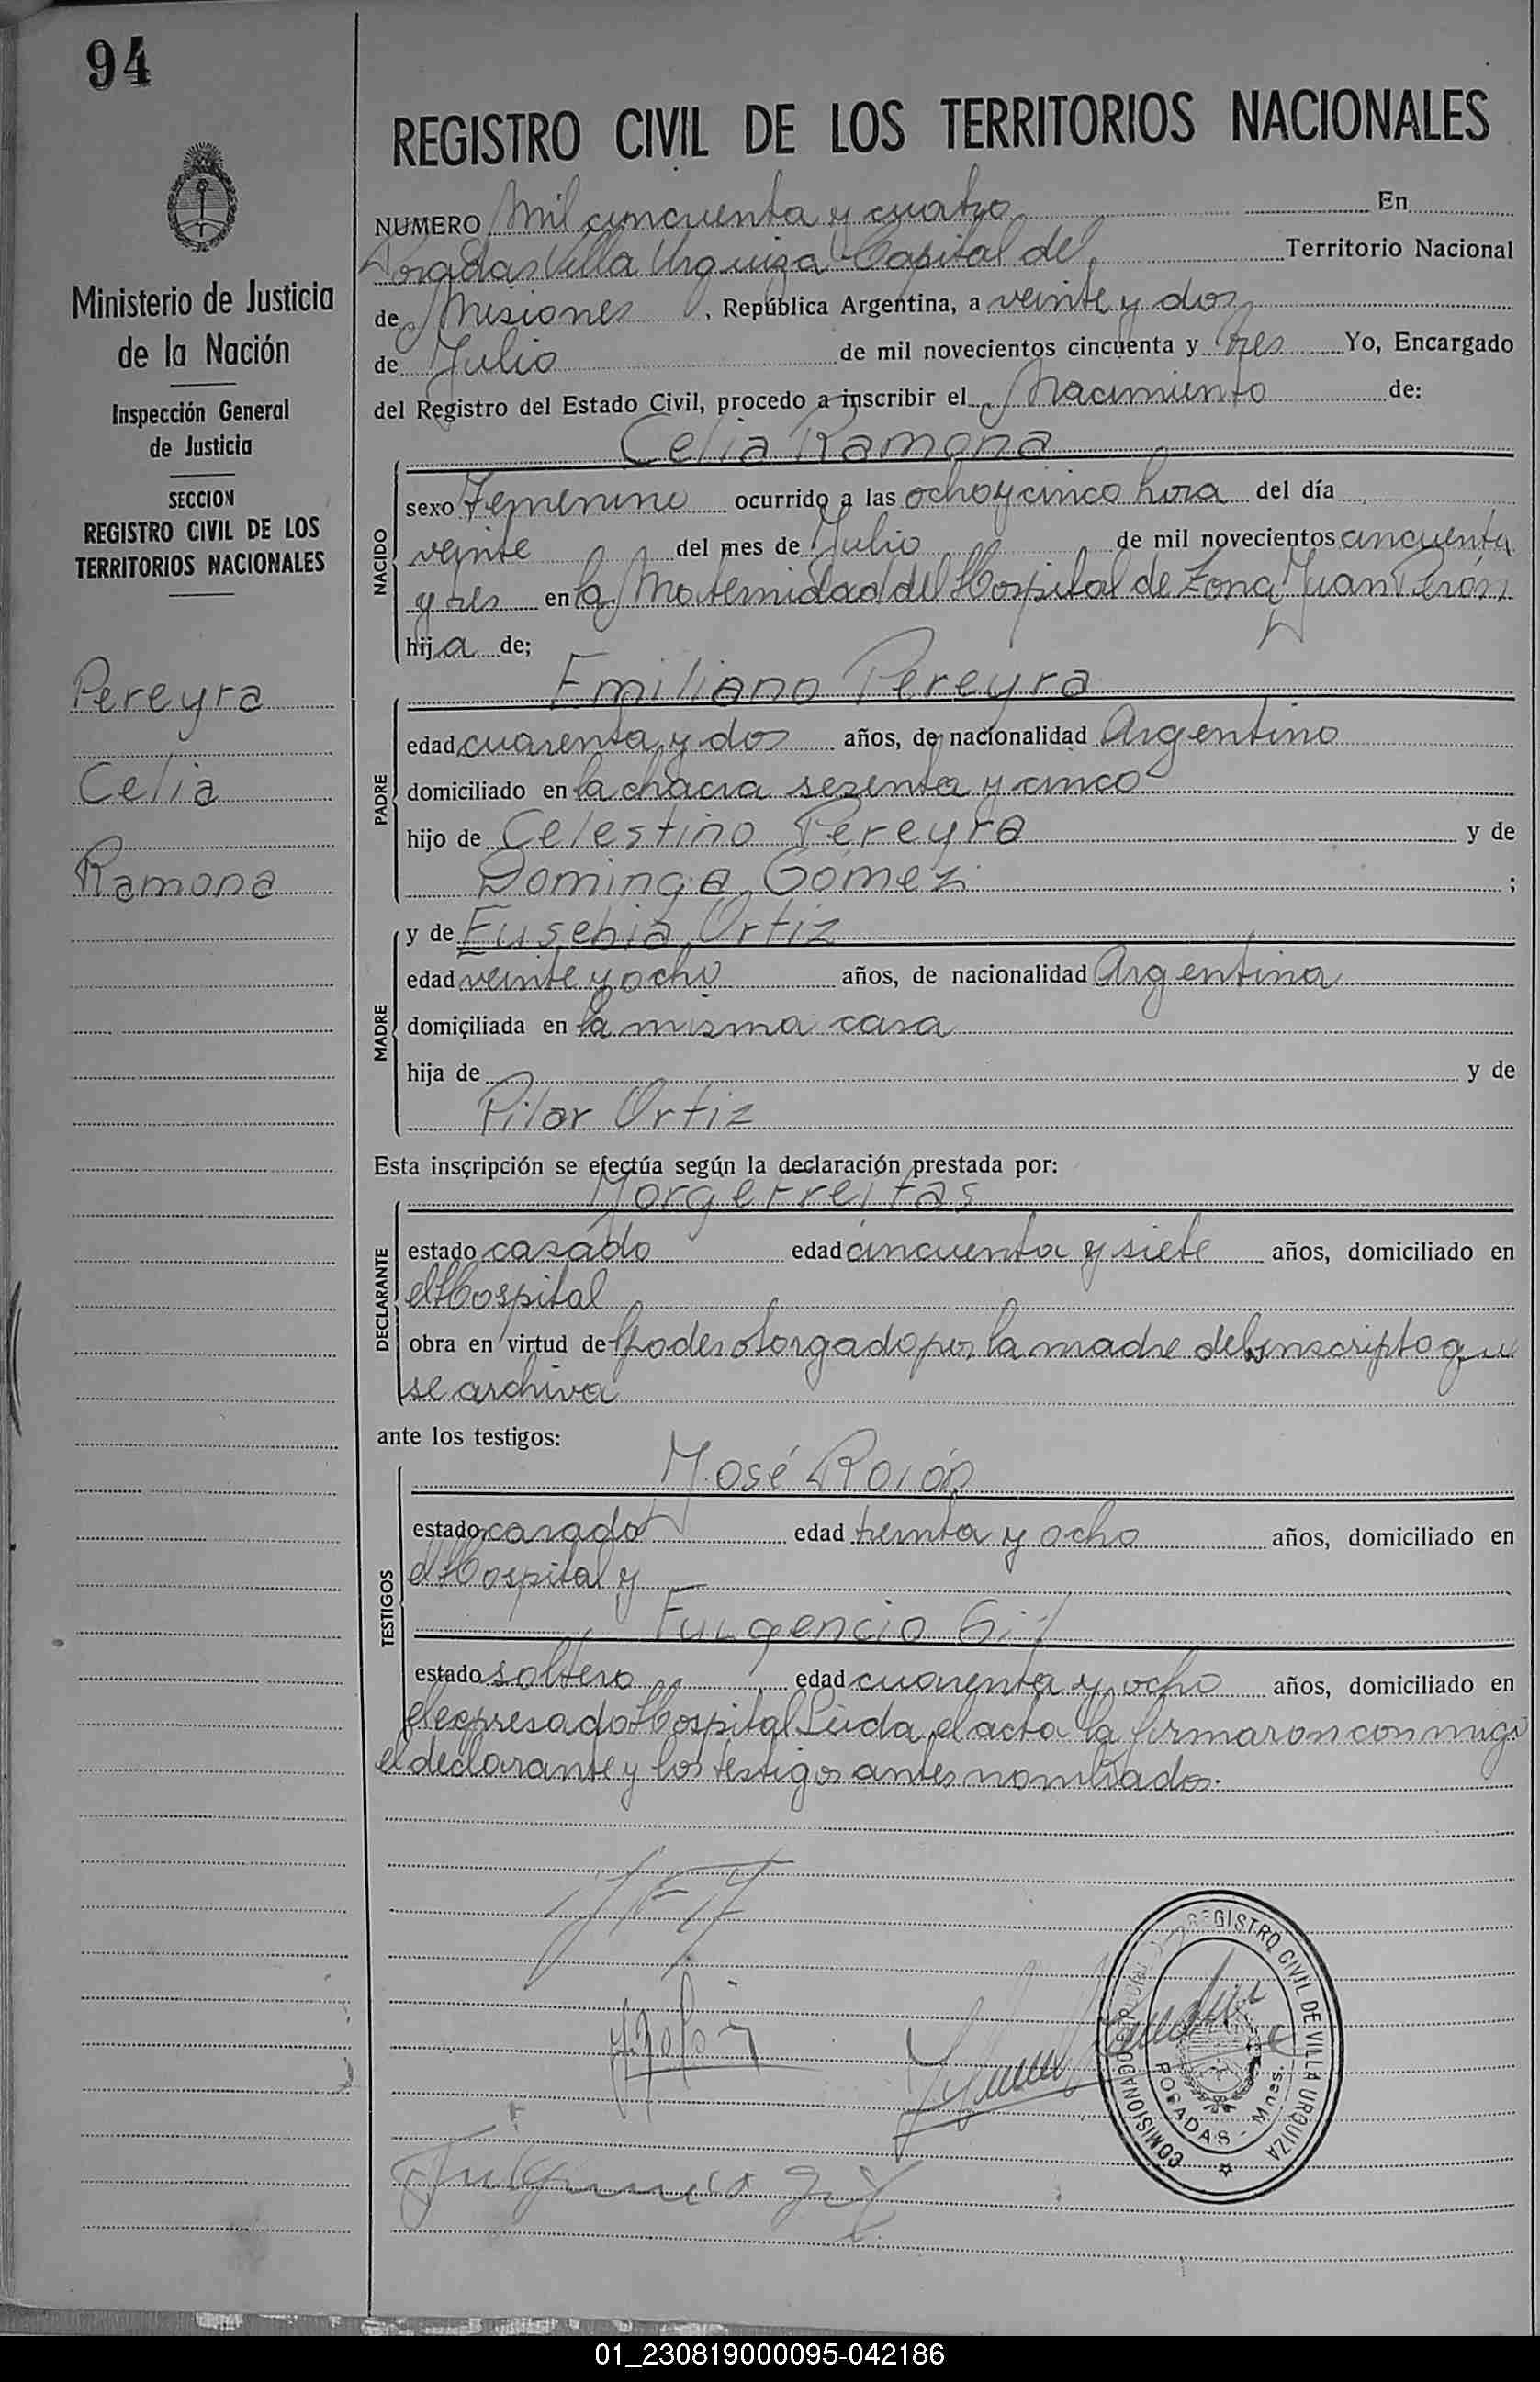 94
REGISTRO CIVIL DE LOS TERRITORIOS NACIONALES
Ministerio de Justicia
de la Nación
Inspección General
de Justicia
SECCION
REGISTRO CIVIL DE LOS
TERRITORIOS NACIONALES
Pereyra
Celia
Ramona
NUMERO Mil cincuenta y cuatro En
Posadas Villa Urquiza Capital del Territorio Nacional
de Misiones, República Argentina, a veinte y dos
de Julio de mil novecientos cincuenta y tres Yo, Encargado
del Registro del Estado Civil, procedo a inscribir el Nacimiento de:
Celia Ramona
NACIDO
sexo Femenino ocurrido a las ocho y cinco hora del día
veinte del mes de Julio de mil novecientos cincuenta
y tres en la Maternidad del Hospital de Zona Juan Perón
hija de;
Emiliano Pereyra
PADRE
edad cuarenta y dos años, de nacionalidad Argentino
domiciliado en la chacra sezenta y cinco
hijo de Celestino Pereyra y de
Dominga Gómez ;
MADRE
y de Eusebia Ortiz
edad veinte y ocho años, de nacionalidad Argentina
domiciliada en la misma casa
hija de y de
Pilar Ortiz
Esta inscripción se efectúa según la declaración prestada por:
Jorge Freitas
DECLARANTE
estado casado edad cincuenta y siete años, domiciliado en
el Hospital
obra en virtud de poder otorgado por la madre del inscripto que
se archiva
ante los testigos:
José Rolón
TESTIGOS
estado casado edad treinta y ocho años, domiciliado en
el Hospital y
Fulgencio Gil
estado soltero edad cuarenta y ocho años, domiciliado en
el expresado Hospital Leída el acta la firmaron conmigo
el declarante y los testigos antes nombrados.
REGISTRO CIVIL DE VILLA URQUIZA
COMISIONADO
POSADAS - Mnes.
Fulgencio Gil
01_230819000095-042186